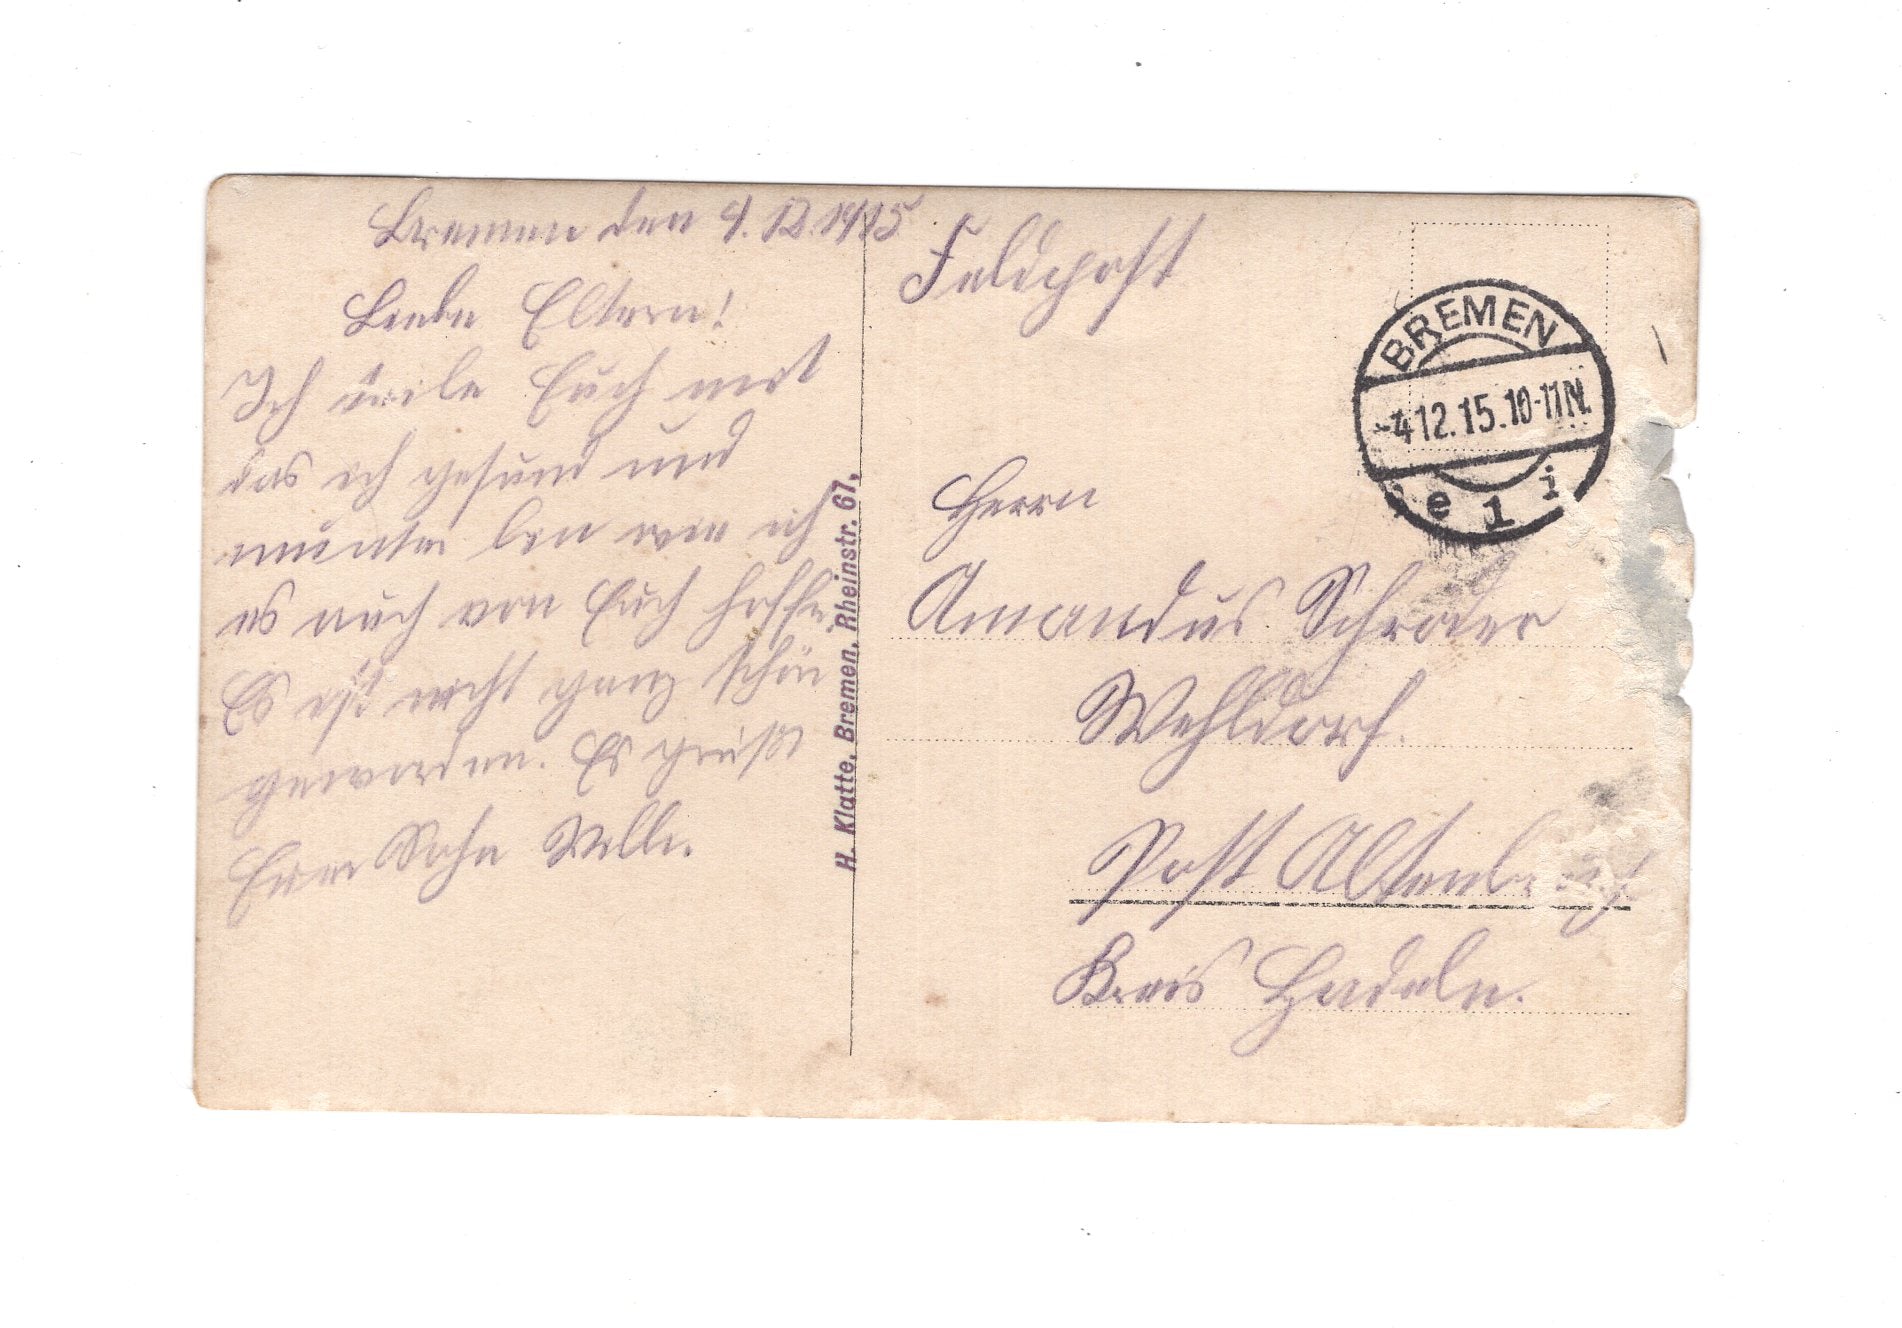 Bremen den 4. 12. 1915
Liebe Eltern!
Ich teile Euch mit
das ich gesund und
munter bin wie ich
es auch von Euch hoffe.
Es ist nicht ganz schön
geworden. Es grüßt
Euer Sohn Willi.
H. Klatte, Bremen, Rheinstr. 67.
Feldpost
BREMEN
-4 12. 15. 10-11 N.
Herrn
Amandus Schröder
Wehldorf.
Post Altenbruch
Kreis Hadeln.